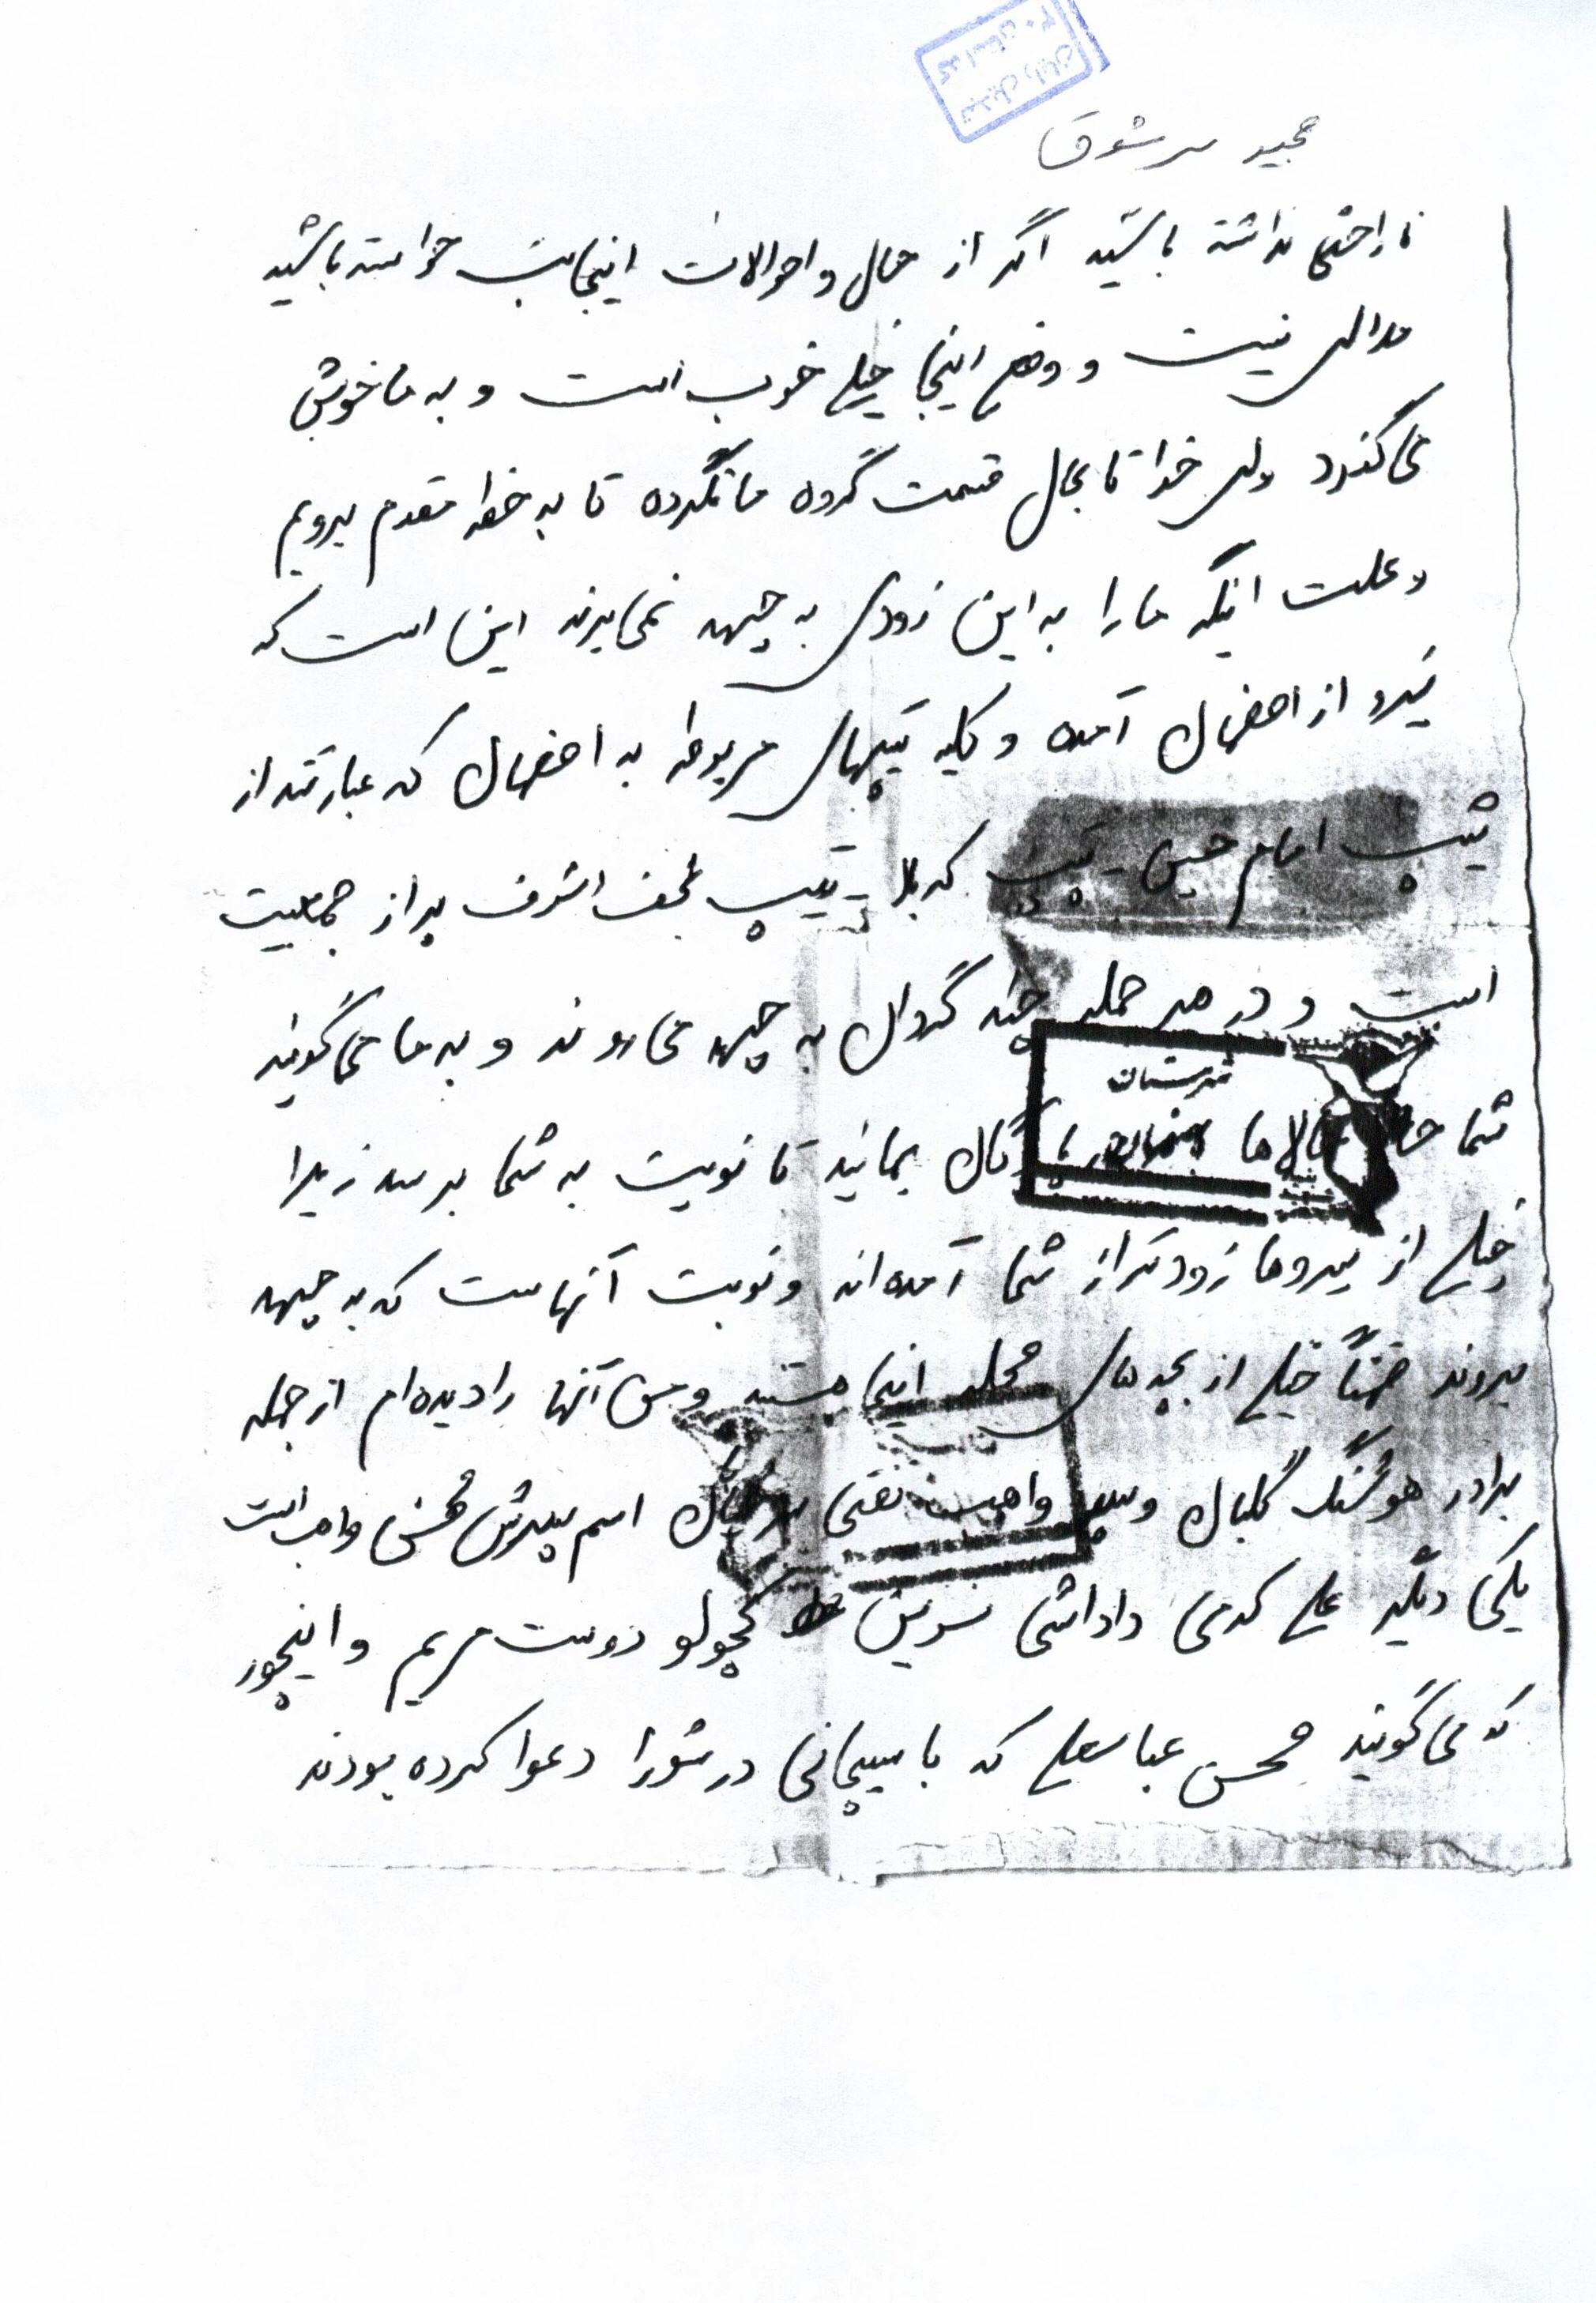 مجید سرشوق
ناراحتی نداشته باشید اگر از حال و احوالات اینجانب خواسته باشید
ملالی نیست و وضع اینجا خیلی خوب است و به ما خوش
می گذرد ولی خدا تا بحال قسمت گروه ما نکرده تا به خط مقدم برویم
و علت اینکه ما را به این زودی به جبهه نمی برند این است که
نیرو از اصفهان آمده و کلیه تیپهای مربوط به اصفهان که عبارتند از
تیپ امام حسین - تیپ کربلا - تیپ نجف اشرف پر از جمعیت
است و در هر حمله چند گردان به جبهه می روند و به ما می گویند
شما حالا حالاها پادگان بمانید تا نوبت به شما برسد زیرا
خیلی از نیروها زودتر از شما آمده اند و نوبت آنهاست که به جبهه
بروند ضمناً خیلی از بچه های محله اینجا هستند و من آنها را دیده ام از جمله
برادر هوشنگ گلبان و پسر واهب نقنی اسم پسرش محسن واهب است
یکی دیگر علی کرمی داداشی نسرین کچولو دوست مریم و اینجور
که می گویند محسن عباسعلی که با سیچانی در شورا دعوا کرده بودند